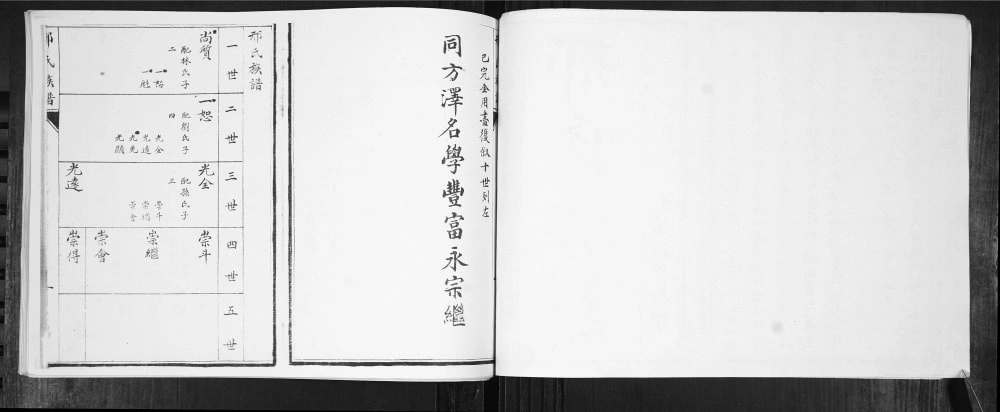 已完全用盡復從十世列左
同方澤名學豐富永宗繼
邢氏族譜
一世
尚質
配林氏子二
一恕
一魁
二世
一恕
配劉氏子四
光全
光遠
光先
光顯
三世
光全
配孫氏子三
崇斗
崇繼
崇會
光遠
四世
崇斗
崇繼
崇會
崇得
五世
邢氏族譜